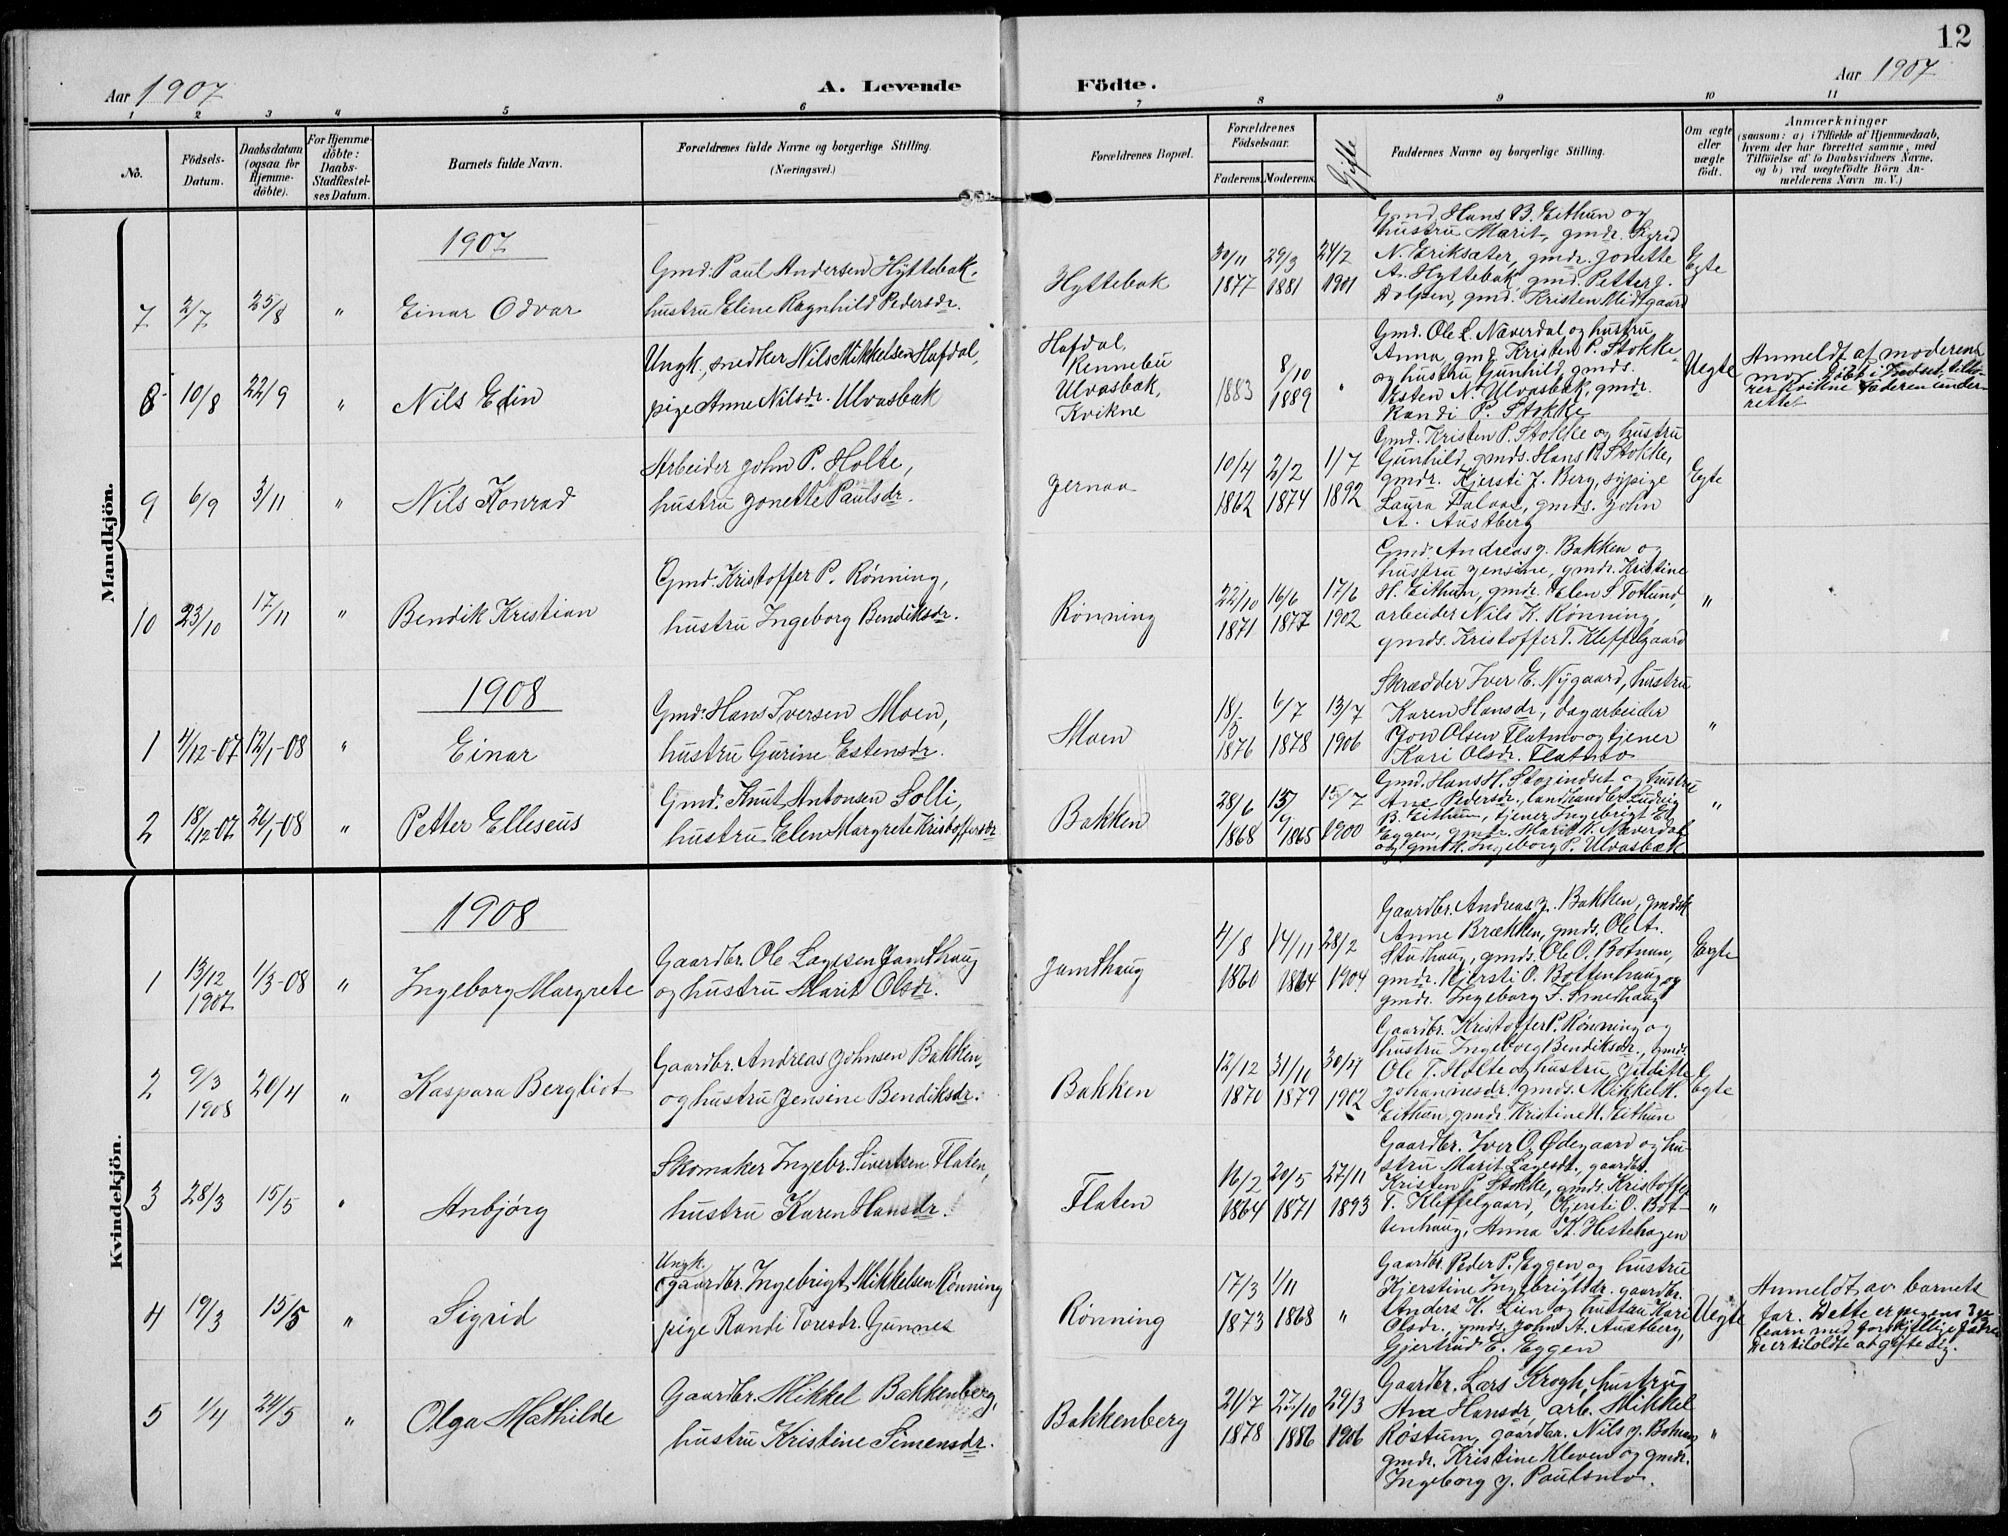 12
Aar 1907
A. Levende
Födte.
Aar 1907
1 2 3 4 5 6 7 8 9 10 11
No.
Födsels-
Datum.
Daabsdatum
(ogsaa for
Hjemme-
döbte).
For Hjemme-
döbte:
Daabs-
Stadfæstel-
ses Datum.
Barnets fulde Navn.
Forældrenes fulde Navne og borgerlige Stilling.
(Næringsvei.)
Forældrenes Bopæl.
Forældrenes
Födselsaar.
Faderens. Moderens.
Gifte
Faddernes Navne og borgerlige Stilling.
Om ægte
eller
uægte
födt.
Anmærkninger
(saasom: a) i Tilfælde af Hjemmedaab,
hvem der har forrettet samme, med
Tilföielse af to Daabsvidners Navne,
og b) ved uægtefödte Börn An-
melderens Navn m. V.)
Mandkjön.
1907
7 2/7 25/8 " Einar Odvar
Gmd. Paul Andersen Hyttebak,
hustru Eline Ragnhild Pedersdr.
Hyttebak
30/11 1877
29/3 1881
24/2 1901
Gmd. Hans B. Eithun og
hustru Marit, gmdr. Sigrid
N. Eriksater, gmdr. Jonette
A. Hyttebak, gmd. Petter J.
Dolpen, gmd. Kristen Midtgaard
Egte
8 10/8 22/9 " Nils Edin
Ungk, snedker Nils Mikkelsen Hafdal,
pige Anne Nilsdr. Ulvasbak
Hafdal,
Rennebu
Ulvasbak,
Kvikne
1883
8/10 1889
"
Gmd. Ole L. Næverdal og hustru
Anna, gmd. Kristen P. Stokke
og hustru Gunhild, gmds.
Esten N. Ulvasbak, gmdr.
Randi P. Stokke
Uegte
Anmeldt af moderens
mor. Döbt i Indset, tilhö-
rer Kvikne. Faderen under-
rettet
9 6/9 3/11 " Nils Konrad
Arbeider John P. Holte,
hustru Jonette Paulsdr.
Jernaa
10/4 1862
2/2 1874
1/7 1892
Gmd. Kristen P. Stokke og hustru
Gunhild, gmds. Hans P. Stokke,
gmdr. Kjersti J. Berg, sypige
Laura Falaas, gmds. John
A. Austberg
Egte
10 23/10 17/11 " Bendik Kristian
Gmd. Kristoffer P. Rønning,
hustru Ingeborg Bendiksdr.
Rønning
22/10 1871
16/6 1877
17/6 1902
Gmd. Andreas J. Bakken og
hustru Jensine, gmdr. Kristine
H. Eithun, gmdr. Elen S Toklund,
arbeider Nils K. Rønning,
gmds. Kristoffer T. Kleffelgaard
"
1908
1 4/12-07 12/1-08 " Einar
Gmd. Hans Iversen Moen,
hustru Gurine Estensdr.
Moen
18/3 1876
6/7 1878
13/7 1906
Skrædder Iver E. Nygaard, hustru
Karen Hansdr., dagarbeider
Jon Olsen Flatmo og tjener
Kari Olsdr. Flatmo
"
2 18/12-07 26/1-08 " Petter Elleseus
Gmd. Knut Antonsen Solli,
hustru Elen Margrete Kristoffersdr
Bakken
28/6 1868
15/9 1865
15/7 1900
Gmd. Hans H. Storindset og hustru
Ane Pedersdr., landhandler Ludvig
B. Eithun, tjener Ingebrigt E.
Eggen, gmdr. Marit K. Næverdal
og gmdk. Ingeborg P. Ulvasbæk
"
Kvindekjön.
1908
1 13/12 1907 1/3-08 " Ingeborg Margrete
Gaardbr. Ole Lagesen Jamthaug
og hustru Marit Olsdr.
Jamthaug
4/8 1860
14/11 1864
28/2 1904
Gaardbr. Andreas J. Bakken, gmdsk.
Anne Brækken, gmds. Ole A.
Studhaug, gmds. Ole O. Botnan,
gmdr. Kjersti O. Bottenhaug og
gmdr. Ingeborg F. Smedhaug
Egte
2 9/3 1908 20/4 " Kaspara Bergliot
Gaardbr. Andreas Johnsen Bakken,
og hustru Jensine Bendiksdr.
Bakken
12/12 1870
31/10 1879
30/4 1902
Gaardbr. Kristoffer P. Rønning og
hustru Ingeborg Bendiksdr., gmd.
Ole T. Holte og hustru
Johannesdr. gmds. Mikkel H.
Eithun, gmdr. Kristine H. Eithun
Egte
3 28/3 15/5 " Anbjørg
Skomaker Ingebr. Sivertsen Flaten,
hustru Karen Hansdr.
Flaten
16/2 1864
20/5 1871
27/11 1893
Gaardbr. Iver O. Ødegaard og hu-
stru Marit Lagesdt., gaardbr.
Kristen P. Stokke, gmds. Kristoffer
T. Kleffelgaard, Kjersti O. Bot-
tenhaug, Anna K. Hestehagen
"
4 19/3 15/5 " Sigrid
Ungk.
gaardbr. Ingebrigt Mikkelsen Rønning
pige Randi Toresdr. Gunnes
Rønning
17/3 1873
1/11 1868
"
Gaardbr. Peder P. Eggen og hustru
Kjerstine Ingebrigtsdr. gaardbr.
Anders K. Lien og hustru Kari
Olsdr., gmds. John A. Austberg,
Gjertrud E. Eggen
Uegte
Anmeldt av barnets
far. Dette er pigens 3 
barn med forskjellige fædre
De er tiloldte at gifte sig.
5 1/4 24/5 " Olga Mathilde
Gaardbr. Mikkel Bakkenberg,
hustru Kristine Simensdr.
Bakkenberg
21/7 1878
27/10 1886
29/3 1906
Gaardbr. Lars Krogh, hustru
Ane Hansdr, arb. Mikkel
Røstum, gaardbr. Nils J.
gmdr. Kristine Kleven og gmdr.
Ingeborg J. Paulsmo.
"